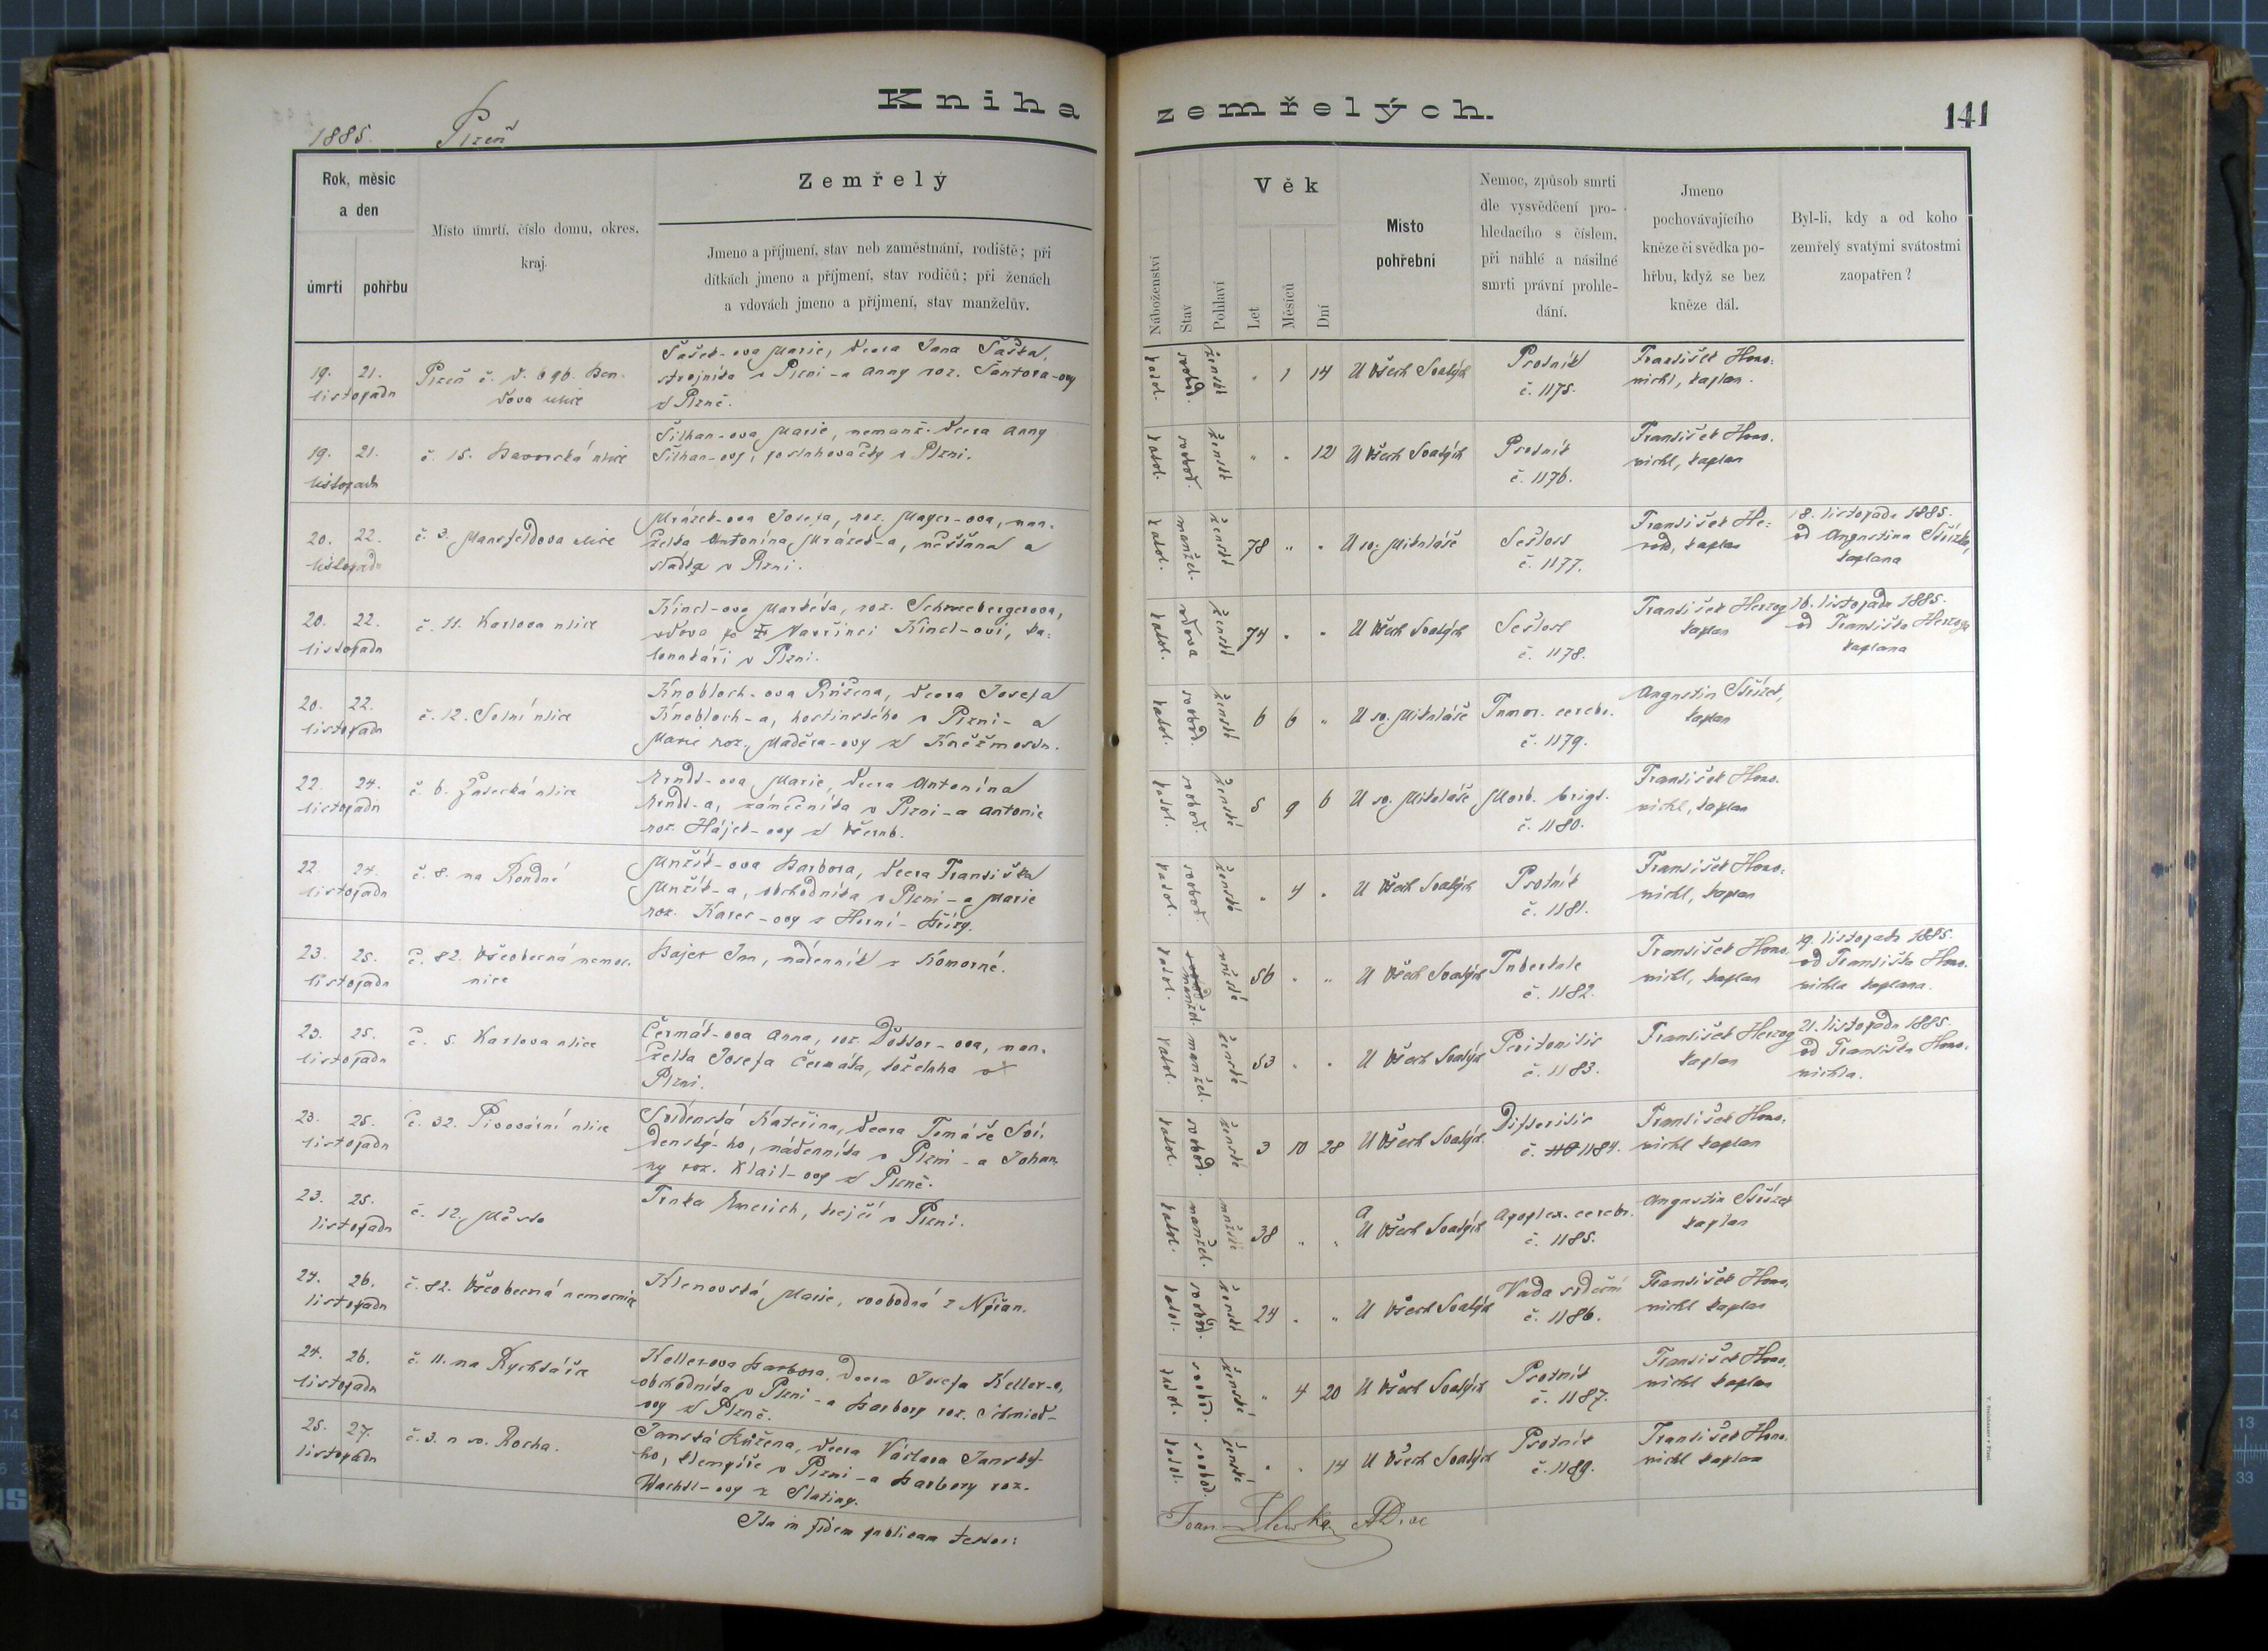 Kniha zemřelých.
141
1885. Plzeň
Rok, měsíc
a den
úmrtí
pohřbu
Místo úmrtí, číslo domu, okres,
kraj.
Zemřelý
Jmeno a příjmení, stav neb zaměstnání, rodiště; při
dítkách jmeno a příjmení, stav rodičů; při ženách
a vdovách jmeno a příjmení, stav manželův.
Náboženství
Stav
Pohlaví
Věk
Let
Měsíců
Dní
Místo
pohřební
Nemoc, způsob smrti
dle vysvědčení pro-
hledacího s číslem,
při náhlé a násilné
smrti právní prohle-
dání.
Jmeno
pochovávajícího
kněze či svědka po-
hřbu, když se bez
kněze dál.
Byl-li, kdy a od koho
zemřelý svatými svátostmi
zaopatřen?
19. 21.
listopadu
Plzeň č. d. 696.
ulice
Šašek-ova Marie, dcera Jana Šaška,
strojníka v Plzni - a Anny roz. Šantora-ovy
z Plzně.
katol.
svobod.
ženské
" 1 14
U Všech Svatých
Psotník
č. 1175.
František Hono-
wichl, kaplan.
19. 21.
listopadu
č. 15. Bavorská ulice
Šilhan-ova Marie, nemanž. dcera Anny
Šilhan-ovy, posluhovačky v Plzni.
katol.
svobod.
ženské
" " 12
U Všech Svatých
Psotník
č. 1176.
František Hono-
wichl, kaplan
20. 22.
listopadu
č. 3. Mansfeldova ulice
Mrázek-ova Josefa, roz. Mayer-ova, man-
želka Antonína Mrázek-a, měšťana a
v Plzni.
katol.
manžel.
ženské
78 " "
U sv. Mikuláše
Sešlost
č. 1177.
František He-
kaplan
18. listopadu 1885.
od Augustina Střízka,
kaplana
20. 22.
listopadu
č. 11. Karlova ulice
Kincl-ova Markéta, roz. Schneebergerova,
vdova po Vavřinci Kincl-ovi, ka-
lounkáři v Plzni.
katol.
vdova
ženské
74 " "
U Všech Svatých
Sešlost
č. 1178.
František Herzog
kaplan
16. listopadu 1885.
od Františka Herzoga
kaplana
20. 22.
listopadu
č. 12. Solní ulice
Knobloch-ova Růžena, dcera Josefa
Knobloch-a, hostinského v Plzni - a
Marie roz. Maděra-ovy z Kněžmostu.
katol.
svobod.
ženské
6 6 "
U sv. Mikuláše
Tumor. cerebr.
č. 1179.
Augustin Střízek,
kaplan
22. 24.
listopadu
č. 6. Žatecká ulice
Arndt-ova Marie, dcera Antonína
Arndt-a, zámečníka v Plzni - a Antonie
roz. Hájek-ovy z Všerub.
katol.
svobod.
ženské
5 9 6
U sv. Mikuláše
Morb. brigt.
č. 1180.
František Hono-
wichl, kaplan
22. 24.
listopadu
č. 8. na Rondně
Mužík-ova Barbora, dcera Františka
Mužík-a, obchodníka v Plzni - a Marie
roz. Karel-ovy z Horní-Břízy.
katol.
svobod.
ženské
" 4 "
U Všech Svatých
Psotník
č. 1181.
František Hono-
wichl, kaplan
23. 25.
listopadu
č. 82. Všeobecná nemoc-
nice
Bajer Jan, nádenník z Komorně.
katol.
manžel.
mužské
56 " "
U Všech Svatých
Tuberkule
č. 1182.
František Hono-
wichl, kaplan
19. listopadu 1885.
od Františka Hono-
wichla kaplana.
23. 25.
listopadu
č. 5. Karlova ulice
Čermák-ova Anna, roz. Doktor-ova, man-
želka Josefa Čermáka, koželuha v
Plzni.
katol.
manžel.
ženské
53 " "
U Všech Svatých
Peritonitis
č. 1183.
František Herzog
kaplan
21. listopadu 1885.
od Františka Hono-
wichla.
23. 25.
listopadu
č. 32. Pivovární ulice
Svidenská Kateřina, dcera Tomáše Svi-
denský-ho, nádenníka v Plzni - a Johan-
ny roz. Klail-ovy z Plzně.
katol.
svobod.
ženské
3 10 28
U Všech Svatých
Difteritis
č. 1184.
František Hono-
wichl kaplan
23. 25.
listopadu
č. 12. Město
Trnka Emerich, krejčí v Plzni.
katol.
manžel.
mužské
38 " "
U Všech Svatých
Apoplex. cerebr.
č. 1185.
Augustin Střízek
kaplan
24. 26.
listopadu
č. 82. Všeobecná nemocnice
Klenovská Marie, svobodná z Nýřan.
katol.
svobod.
ženské
24 " "
U Všech Svatých
Vada srdeční
č. 1186.
František Hono-
wichl kaplan
24. 26.
listopadu
č. 11. na Rychtářce
Kellerova Barbora, dcera Josefa Keller-a,
obchodníka v Plzni - a Barbory roz. Šmied-
ovy z Plzně.
katol.
svobod.
ženské
" 4 20
U Všech Svatých
Psotník
č. 1187.
František Hono-
wichl kaplan
25. 27.
listopadu
č. 3. u sv. Rocha.
Janská Růžena, dcera Václava Janský-
ho, klempíře v Plzni - a Barbory roz.
Wachtl-ovy z Slatiny.
katol.
svobod.
ženské
" " 14
U Všech Svatých
Psotník
č. 1189.
František Hono-
wichl kaplan
Ita in fidem publicam testor: